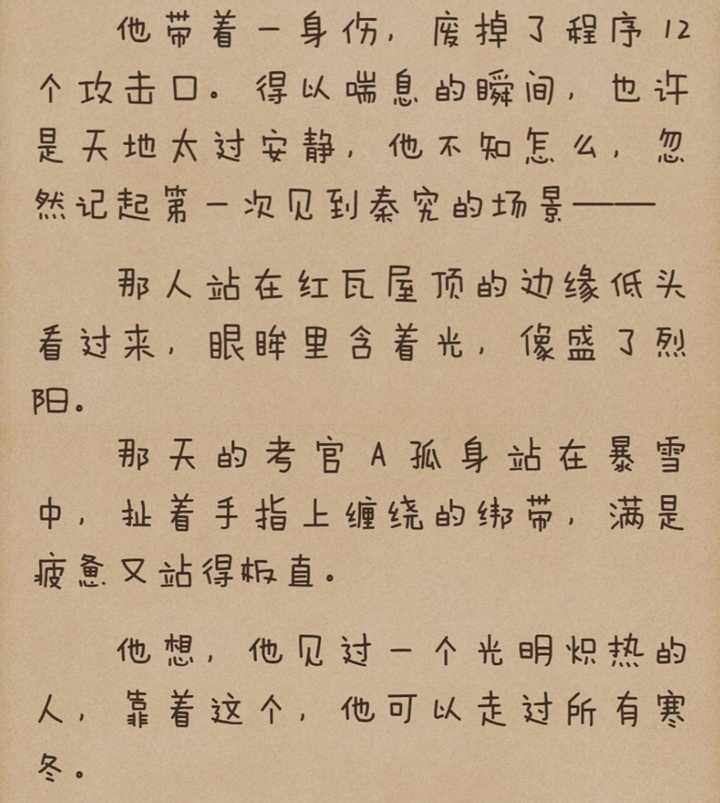 他带着一身伤，废掉了程序12
个攻击口。得以喘息的瞬间，也许
是天地太过安静，他不知怎么，忽
然记起第一次见到秦究的场景——
那人站在红瓦屋顶的边缘低头
看过来，眼眸里含着光，像盛了烈
阳。
那天的考官A孤身站在暴雪
中，扯着手指上缠绕的绑带，满是
疲惫又站得板直。
他想，他见过一个光明炽热的
人，靠着这个，他可以走过所有寒
冬。